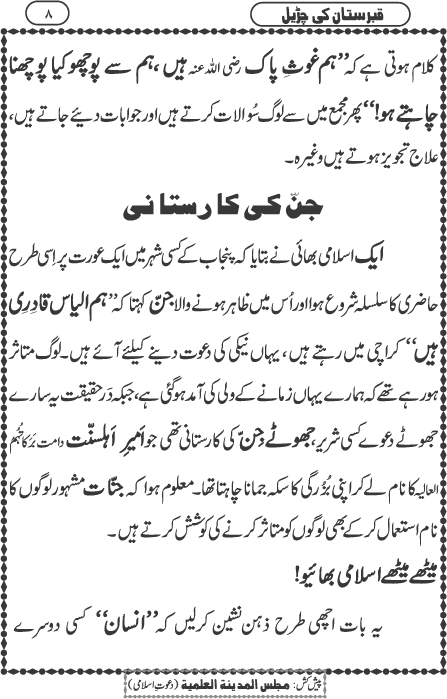 قبرستان کی چڑیل
۸
کلام ہوتی ہے کہ ’’ہم غوثِ پاک رضی اللہ عنہ ہیں، ہم سے پوچھو کیا پوچھنا
چاہتے ہو!‘‘ پھر مجمع میں سے لوگ سُوالات کرتے ہیں اور جوابات دیئے جاتے ہیں،
علاج تجویز ہوتے ہیں وغیرہ۔
جنّ کی کارستانی
ایک اسلامی بھائی نے بتایا کہ پنجاب کے کسی شہر میں ایک عورت پر اِسی طرح
حاضری کا سلسلہ شروع ہوا اور اُس میں ظاہر ہونے والا جنّ کہتا کہ ’’ہم الیاس قادِری
ہیں‘‘ کراچی میں رہتے ہیں، یہاں نیکی کی دعوت دینے کیلئے آئے ہیں۔ لوگ متاثر
ہورہے تھے کہ ہمارے یہاں زمانے کے ولی کی آمد ہوگئی ہے، جبکہ دَر حقیقت یہ سارے
جھوٹے دعوے کسی شریر، جھوٹے جِنّ کی کارستانی تھی جو امیرِ اَہلسنّت دامت برکاتہم
العالیہ کا نام لے کر اپنی بُزُرگی کا سکہ جمانا چاہتا تھا۔ معلوم ہوا کہ جنّات مشہور لوگوں کا
نام استعمال کر کے بھی لوگوں کو متاثر کرنے کی کوشش کرتے ہیں۔
میٹھے میٹھے اسلامی بھائیو!
یہ بات اچھی طرح ذہن نشین کرلیں کہ ’’انسان‘‘ کسی دوسرے
پیش کش: مجلس المدینۃ العلمیۃ (دعوتِ اسلامی)